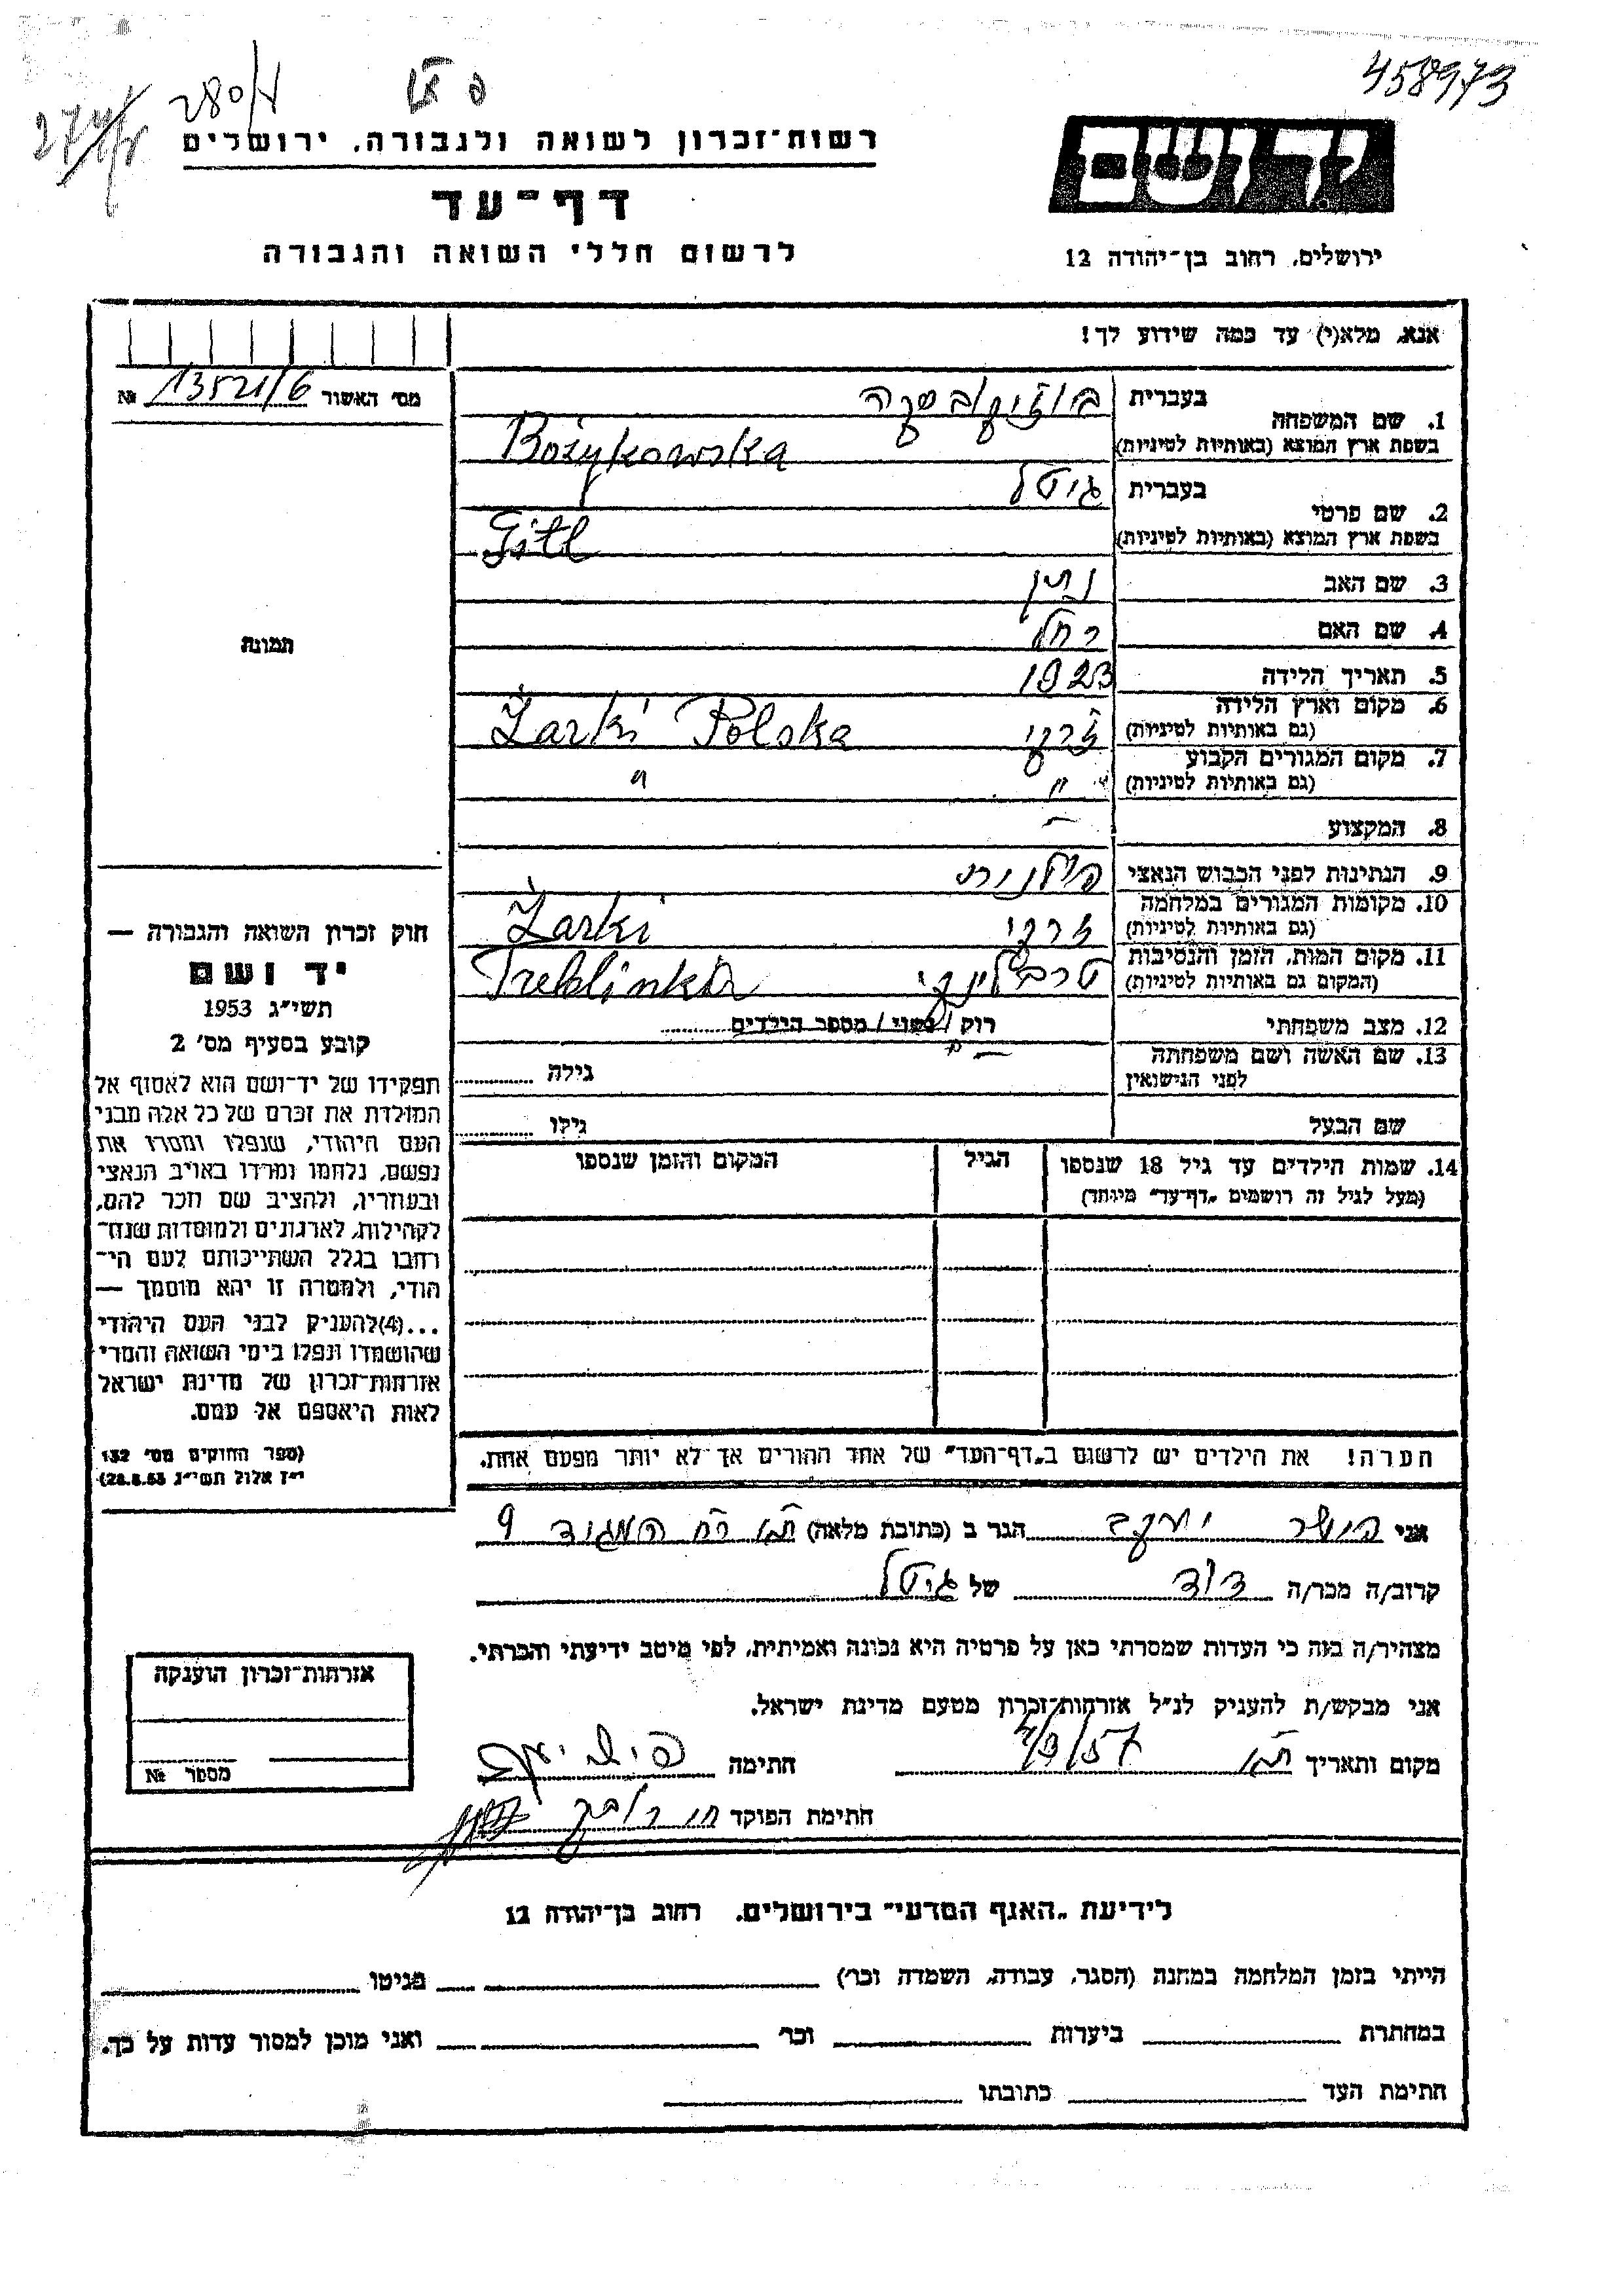 458973
280/
רשות-זכרון לשואה ולגבורה, ירושלים
יד ושם
דף-עד
לרשום חללי השואה והגבורה
ירושלים, רחוב בן-יהודה 12
אנא, מלא(י) עד כמה שידוע לך!
מס' האשור 13521/6 №
1. שם המשפחה
בעברית בוזיקובסקה
בשפת ארץ המוצא (באותיות לטיניות) Bożykowska
2. שם פרטי
בעברית גיטל
בשפת ארץ המוצא (באותיות לטיניות) Gitl
3. שם האב נתן
4. שם האם רחל
5. תאריך הלידה 1923
6. מקום וארץ הלידה
(גם באותיות לטיניות) זרקי Żarki Polska
7. מקום המגורים הקבוע
(גם באותיות לטיניות) " "
8. המקצוע –
9. הנתינות לפני הכבוש הנאצי פולנית
10. מקומות המגורים במלחמה
(גם באותיות לטיניות) זרקי Żarki
11. מקום המות, הזמן והנסיבות
(המקום גם באותיות לטיניות) טרבלינקי Treblinka
12. מצב משפחתי רוק / נשוי / מספר הילדים
13. שם האשה ושם משפחתה
לפני הנישואין גילה
שם הבעל גילו
14. שמות הילדים עד גיל 18 שנספו הגיל המקום והזמן שנספו
(מעל לגיל זה רושמים „דף-עד" מיוחד)
הערה! את הילדים יש לרשום ב„דף-העד" של אחד ההורים אך לא יותר מפעם אחת.
תמונה
חוק זכרון השואה והגבורה —
יד ושם
תשי"ג 1953
קובע בסעיף מס' 2
תפקידו של יד-ושם הוא לאסוף אל
המולדת את זכרם של כל אלה מבני
העם היהודי, שנפלו ומסרו את
נפשם, נלחמו ומרדו באויב הנאצי
ובעוזריו, ולהציב שם וזכר להם,
לקהילות, לארגונים ולמוסדות שנח-
רחבו בגלל השתייכותם לעם הי-
הודי, ולמטרה זו יהא מוסמך —
...(4)להעניק לבני העם היהודי
שהושמדו ונפלו בימי השואה והמרי
אזרחות-זכרון של מדינת ישראל
לאות היאספם אל עמם.
(ספר החוקים מס' 132
י"ז אלול תשי"ג 28.8.53)
אני יעקב הגר ב (כתובת מלאה) 9
קרוב/ה מכר/ה דוד של גיטל
מצהיר/ה בזה כי העדות שמסרתי כאן על פרטיה היא נכונה ואמיתית, לפי מיטב ידיעתי והכרתי.
אני מבקש/ת להעניק לנ"ל אזרחות-זכרון מטעם מדינת ישראל.
מקום ותאריך חתימה
חתימת הפוקד
אזרחות-זכרון הוענקה
מספר №
לידיעת „האגף המדעי" בירושלים, רחוב בן-יהודה 12
הייתי בזמן המלחמה במחנה (הסגר, עבודה, השמדה וכר') בגיטו
במחתרת ביערות וכר' ואני מוכן למסור עדות על כך.
חתימת העד כתובתו